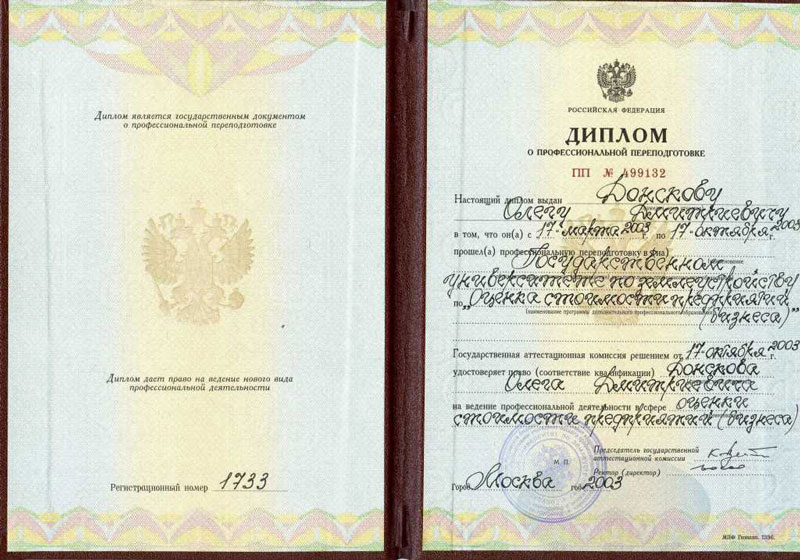 Диплом является государственным документом
о профессиональной переподготовке
Диплом дает право на ведение нового вида
профессиональной деятельности
Регистрационный номер 1733
РОССИЙСКАЯ ФЕДЕРАЦИЯ
ДИПЛОМ
О ПРОФЕССИОНАЛЬНОЙ ПЕРЕПОДГОТОВКЕ
ПП № 499132
Настоящий диплом выдан Донскову
Олегу Дмитриевичу
в том, что он(а) с 17 марта 2003 г. по 17 октября 2003 г.
прошел(а) профессиональную переподготовку в (на) Государственном
университете по землеустройству
по „Оценка стоимости предприятий
(наименование программы дополнительного профессионального образования)
(бизнеса)"
Государственная аттестационная комиссия решением от 17 октября 2003 г.
удостоверяет право (соответствие квалификации) Донскова
Олега Дмитриевича
на ведение профессиональной деятельности в сфере оценки
стоимости предприятий (бизнеса)
Председатель государственной
аттестационной комиссии
М П
Ректор (директор)
Город Москва год 2003